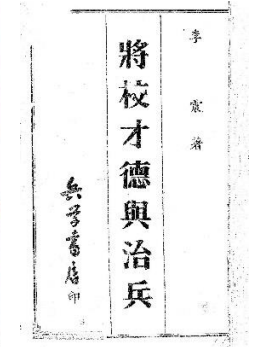 李震著
將校才德與治兵
兵學書店印